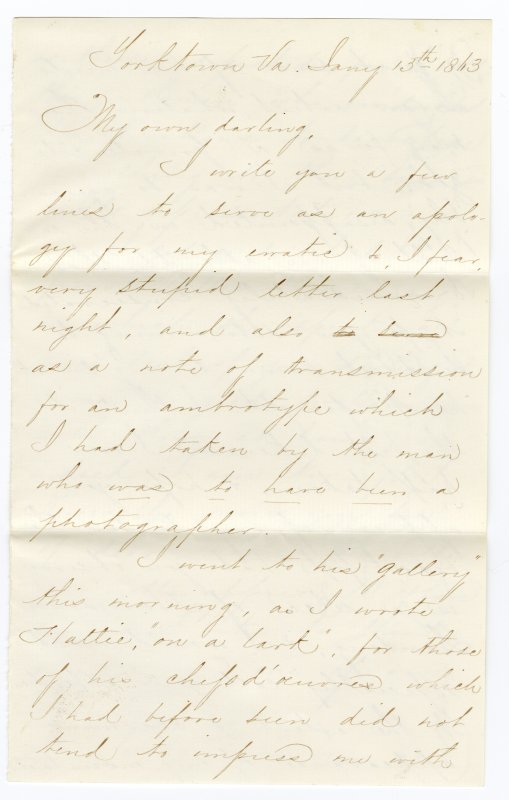 Yorktown Va. Jany 13th 1863
My own darling,
I write you a few
lines to serve as an apolo-
gy for my erratic &, I fear,
very stupid letter last
night, and also to serve
as a note of transmission
for an ambrotype which
I had taken by the man
who was to have been a
photographer.
I went to his "gallery"
this morning, as I wrote
Hattie, "on a lark", for those
of his chefs d'œuvres which
I had before seen did not
tend to impress me with